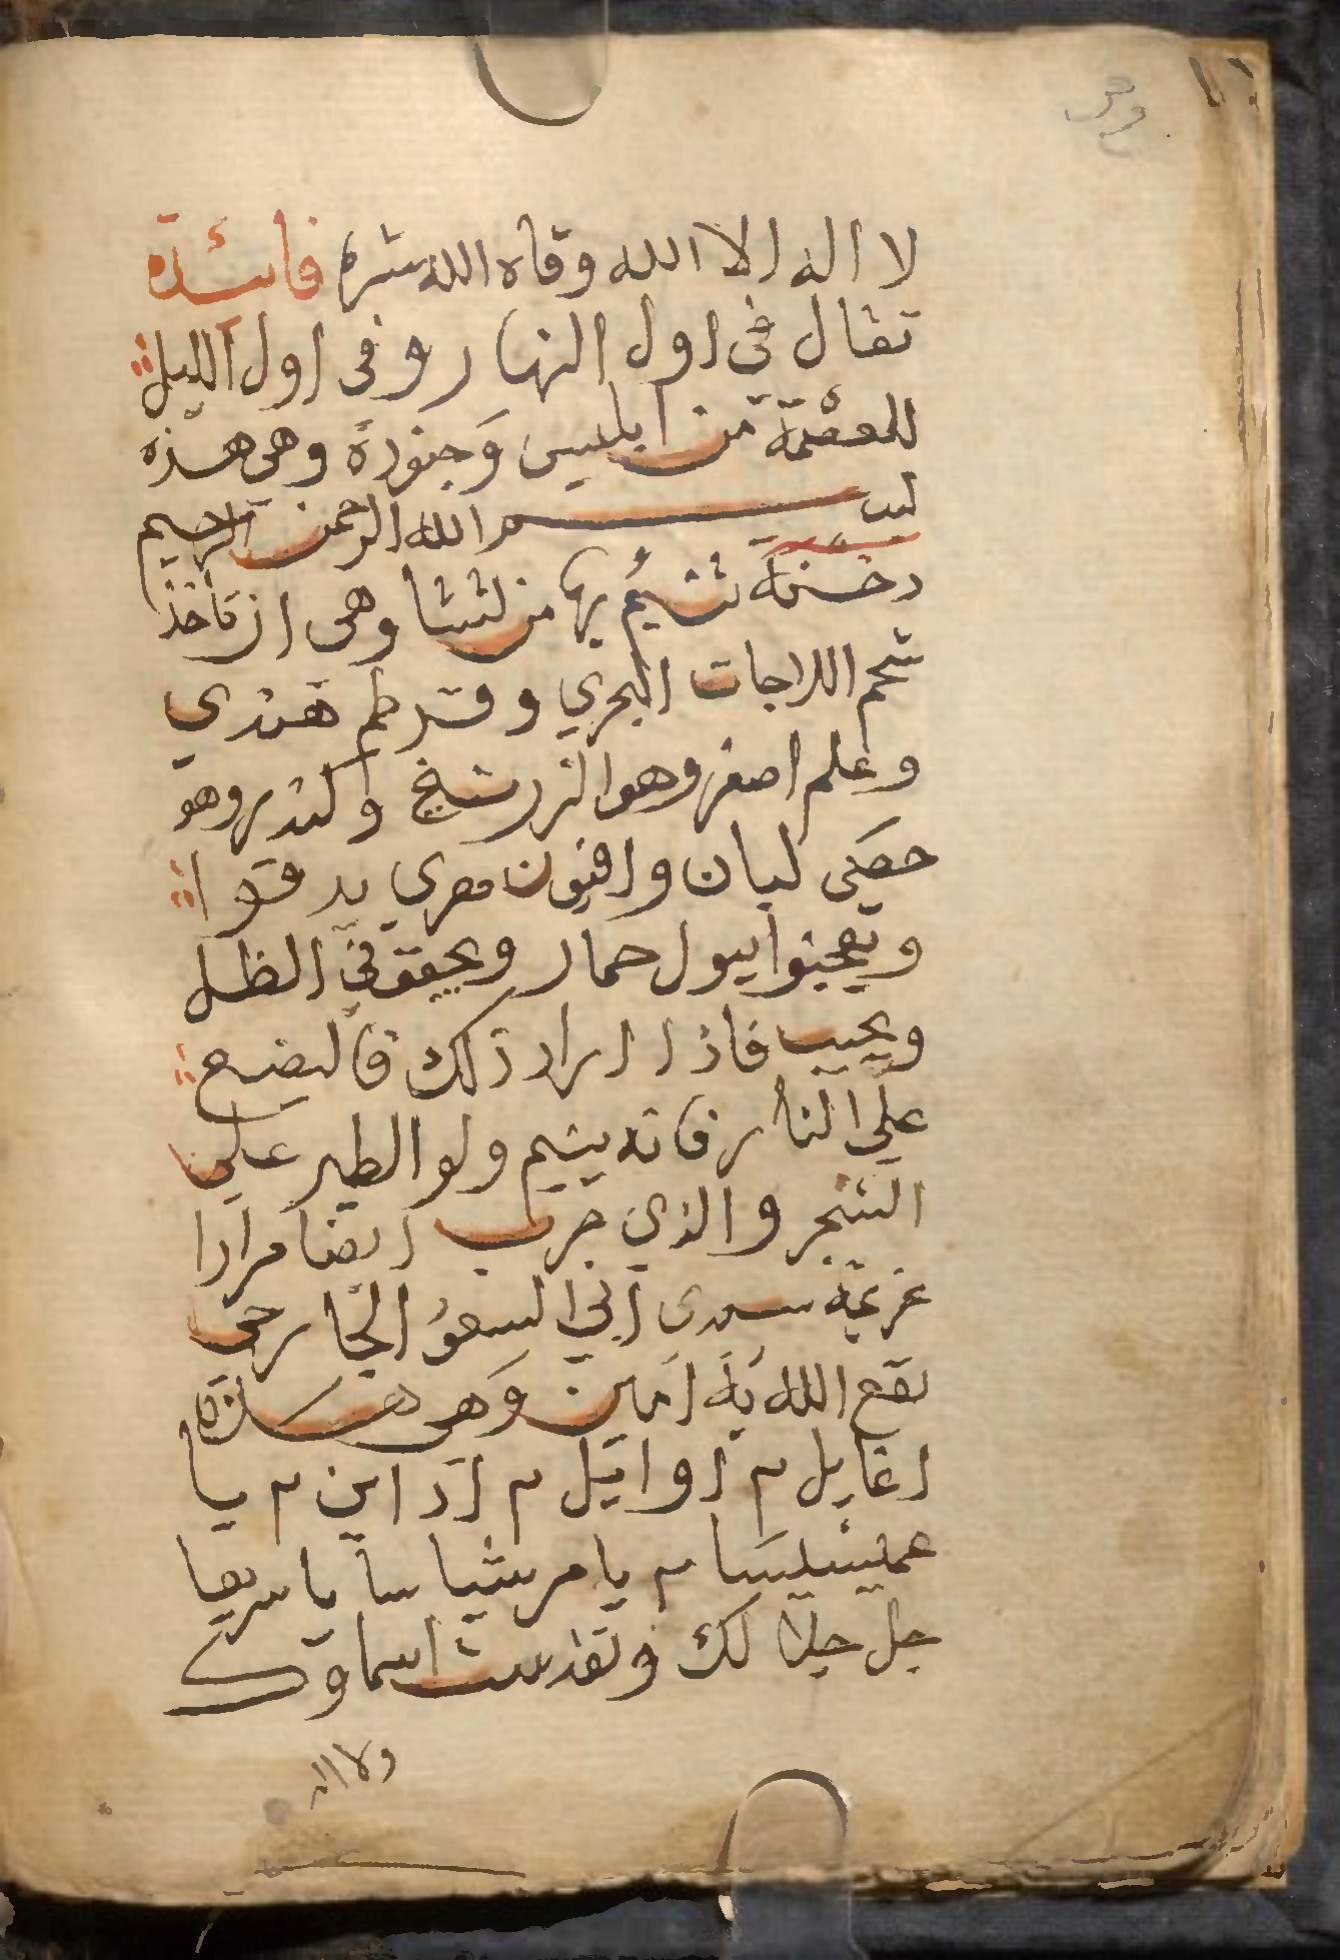 لا اله الا الله وقاه الله شره فائدة
تقال فى اول النهار وفى اول الليل
للعصمة من ابليس وجنوده وهى هذه
بسم الله الرحمن الرحيم
دخنة تنيم بها من تشا وهى ان تاخذ
شحم الدجاجات البحري وقرطم هندي
وعلم اصفر وهو الزرنيخ وكندر وهو
حصى لبان وافيون مصري يدقوا
وتعجنوا ببول حمار ويجفف فى الظل
ويحبب فاذا اراد ذلك فاليضع
على النار فانه ينيم ولو الطير على
الشجر والذي جرب ايضا مرارا
عزيمة سيدى ابى السعود الجارحى
نفع الله به امين وهى هذه
اوايل م
يا
يا سريعا
جل جلالك وتقدست اسماوك
ولا اله